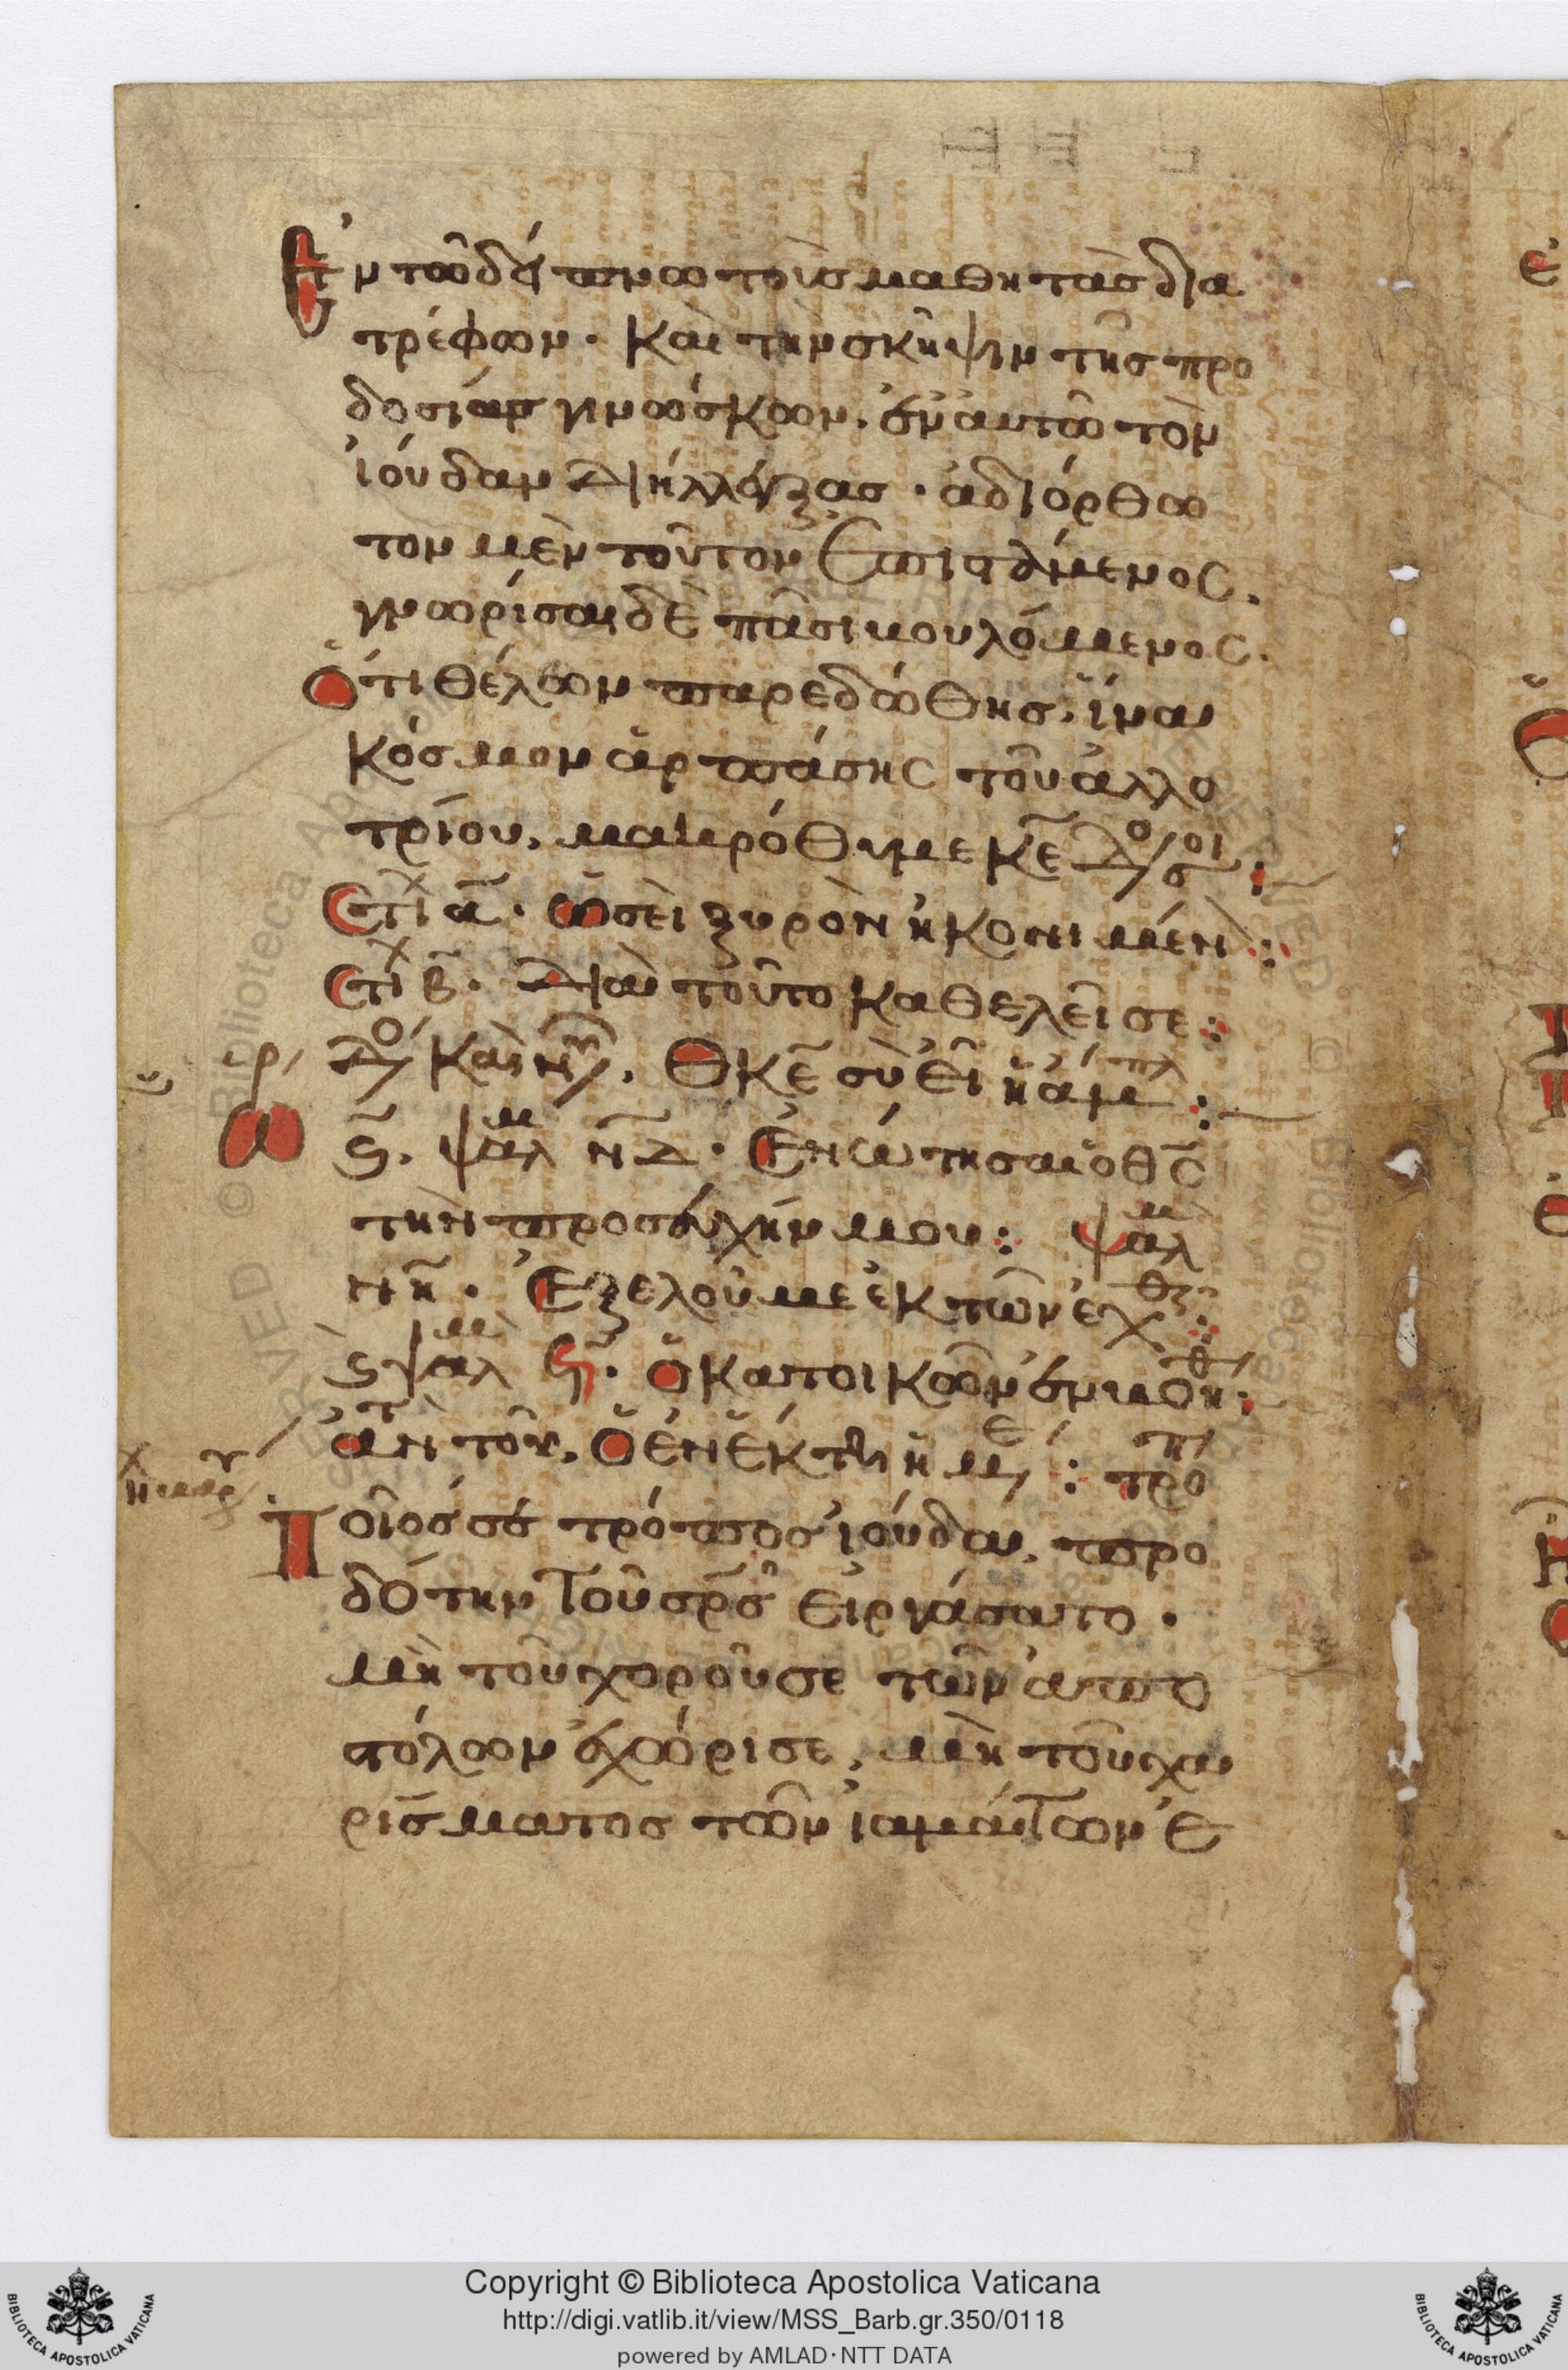 Ἐν τῶ δείπνω τοὺς μαθητὰς δια
τρέφων· καὶ τὴν σκῆψιν τῆς προ
δοσίας γινώσκων. ἐν αὐτῶ τὸν
ἰούδαν διήλεγξας· ἀδιόρθω
τον μὲν τοῦτον ἐπιστάμενος.
γνωρίσαι δὲ πᾶσι βουλόμενος.
ὅτι θέλων παρεδώθης. ἵνα
κόσμον ἁρπάσης τοῦ ἀλλο
τρίου. μακρόθυμε κε δο οι:
Στιχ α. ὡσεὶ ξυρὸν ἠκονιμέν:
Στιχ β. Διὰ τοῦτο καθελεῖ σε:
Δο καὶ νυν. Θκε σὺ εἶ ἡ ἄμπελ:
ψαλμ νδ. Ἐνώτησαι ὁ θς
τὴν προσευχήν μου: ψαλμ
νη. Ἐξελοῦ με ἐκ τῶν ἐχθ:
ς ψαλμ ϟ. ὁ κατοικῶν ἐν βοηθ:
ἀντ τοῦ. ὁ ἐν ἕκτη ἡμε: τρο
Ποῖός σε τρόπος ἰούδα. προ
δότην τοῦ σρς εἰργάσατο.
μὴ τοῦ χοροῦ σε τῶν ἀπο
στόλων ἐχώρισε, μὴ τοῦ χα
ρίσματος τῶν ἰαμάτων ἐ
Copyright © Biblioteca Apostolica Vaticana
http://digi.vatlib.it/view/MSS_Barb.gr.350/0118
powered by AMLAD·NTT DATA